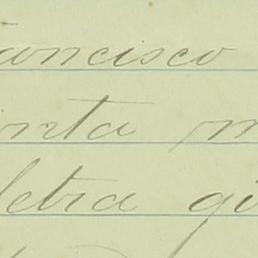 ancisco
inta m
letra gi